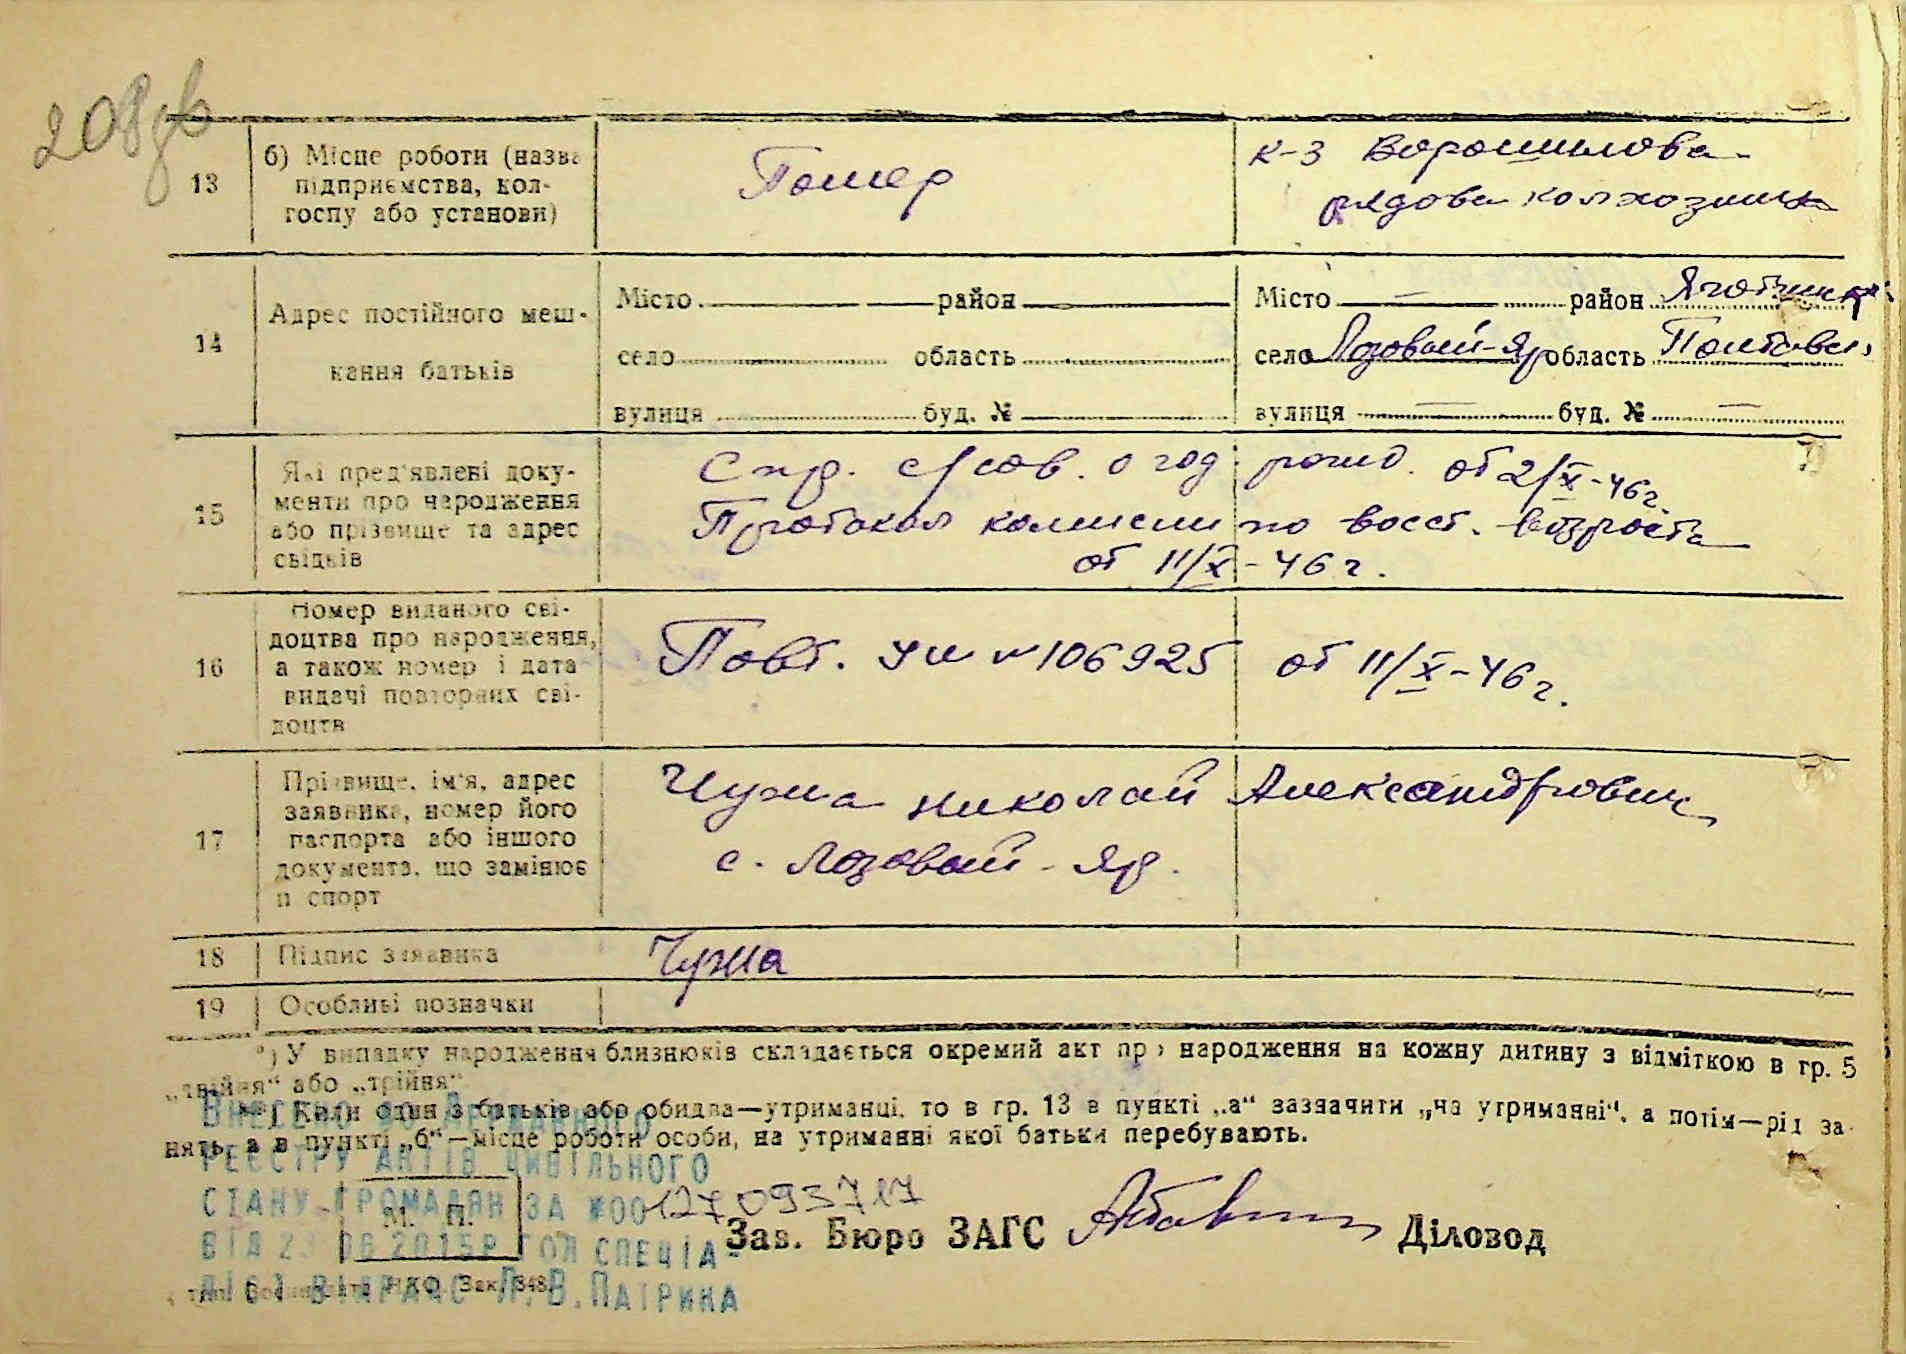 208
13 б) Місце роботи (назва підприємства, колгоспу або установи)
Помер
к-з Ворошилова
рядова колхозниця
14 Адрес постійного мешкання батьків
Місто район
село область
вулиця буд. №
Місто — район Яготинськ
село Лозовый-Яр область Полтавс.
вулиця — буд. № —
15 Які пред'явлені документи про народження або прізвище та адрес свідків
Спр. с/сов. о год. рожд. от 2/X-46г.
Протокол комиссии по восст. возраста
от 11/X-46 г.
16 Номер виданого свідоцтва про народження, а також номер і дата видачі повторних свідоцтв
Повт. № 106925 от 11/X-46 г.
17 Прізвище, ім'я, адрес заявника, номер його паспорта або іншого документа, що замінює п спорт
Чужа Николай Александрович
с. Лозовый-Яр.
18 Підпис заявника
Чужа
19 Особливі позначки
*) У випадку народження близнюків складається окремий акт про народження на кожну дитину з відміткою в гр. 5
„двійня“ або „трійня“
**) Коли один з батьків або обидва—утриманці, то в гр. 13 в пункті „а“ зазначити „на утриманні“, а потім—рід за-
нять, а в пункті „б“—місце роботи особи, на утриманні якої батьки перебувають.
Внесено до Державного
реєстру актів цивільного
стану громадян за №00127093717
від 23 06 2015р гол спеціа-
ліст ВДРАЦС Л.В.Патрика
М. П.
Зав. Бюро ЗАГС Діловод
Зак. 848